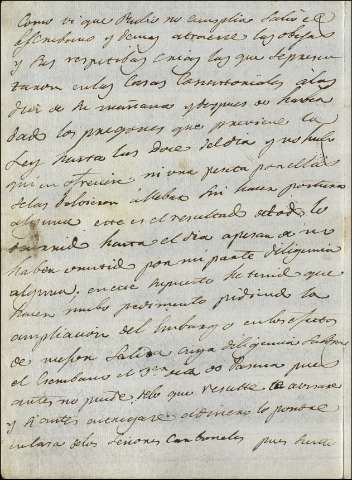 Como vi que Rubio no cumplia salio el
Escribano y demas atraerse las obejas
y sus respetibas crias las que se presen
taron en las Casas Consistoriales a las
diez de la mañana y despues se havia
dado los pregones que previene la
Ley hasta las doce del dia y no hubo
quien ofreciese ni una peseta por ellas
se las bolvieron a llebar sin hacer postura
alguna, este es el resultado de todo lo
hasta el dia apesar de no
haber omitido por mi parte diligencia
alguna, en ese supuesto he tenido que
hacer nuebo pedimento pidiendo la
ampliacion del Embargo en los efectos
de mejor salida cuya diligencia
el Escribano el dia de Pascua pues
antes no puede, de lo que resulte avisare
y si antes el dinero lo pondre
en casa de los Señores Carboneles pues